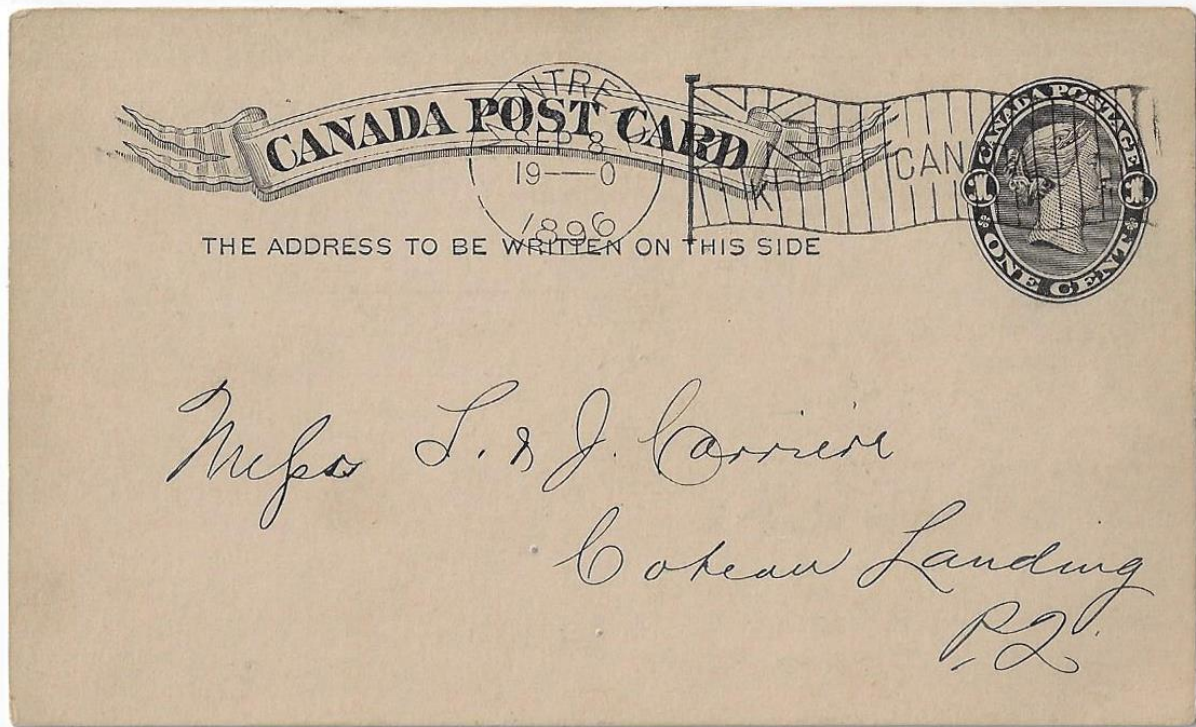 CANADA POST CARD
MONTREAL
SEP 8
19—0
1896
CAN
K
CANADA POSTAGE
1 1
ONE CENT
THE ADDRESS TO BE WRITTEN ON THIS SIDE
Messrs T. & J. Carriere
Coteau Landing
P.Q.